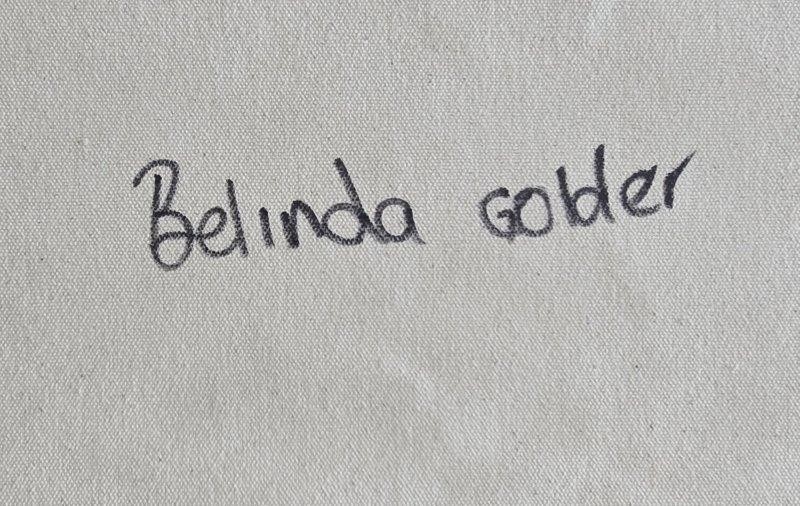 Belinda Golder